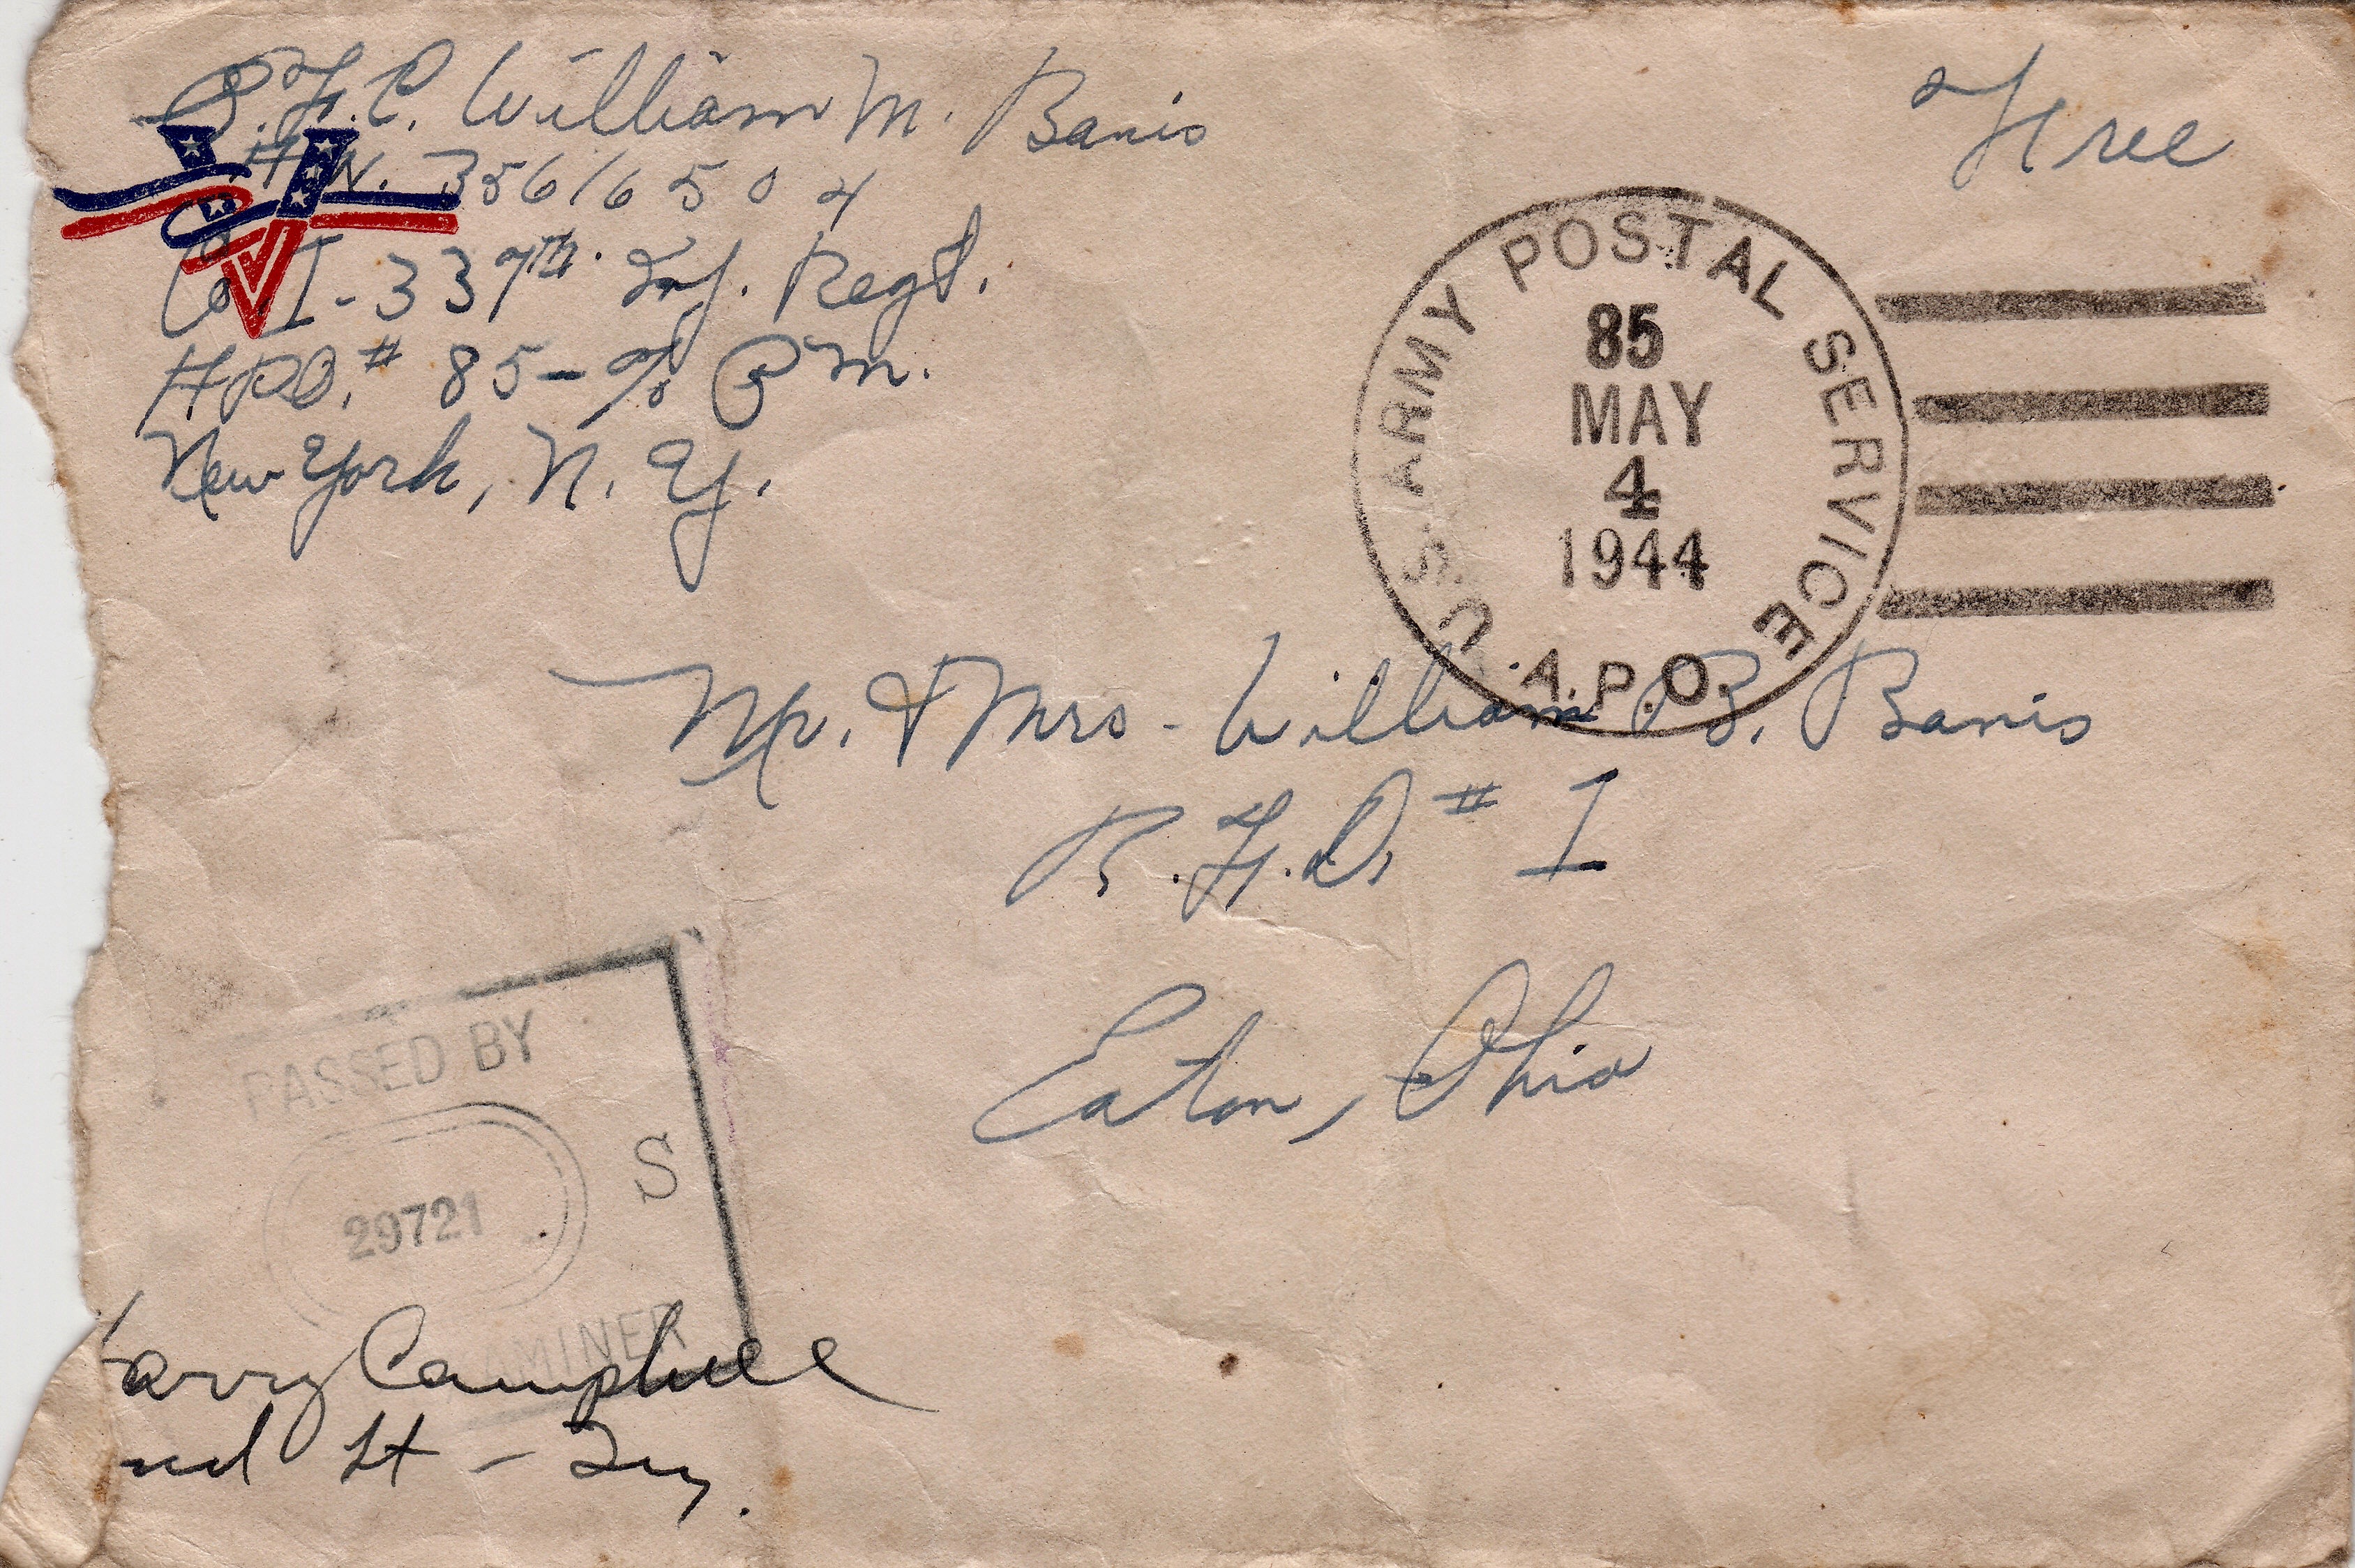 P.F.C. William M. Banis
A.S.N. 35616504
Co. I - 337th. Inf. Regt.
A.P.O. # 85 - % P.M.
New York, N. Y.
Free
U.S. ARMY POSTAL SERVICE
85
MAY
4
1944
A.P.O.
Mr. & Mrs. William B. Banis
R.F.D. # 1
Eaton, Ohio
PASSED BY
S
29721
AMINER
Harry Campbell
2nd Lt - Inf.